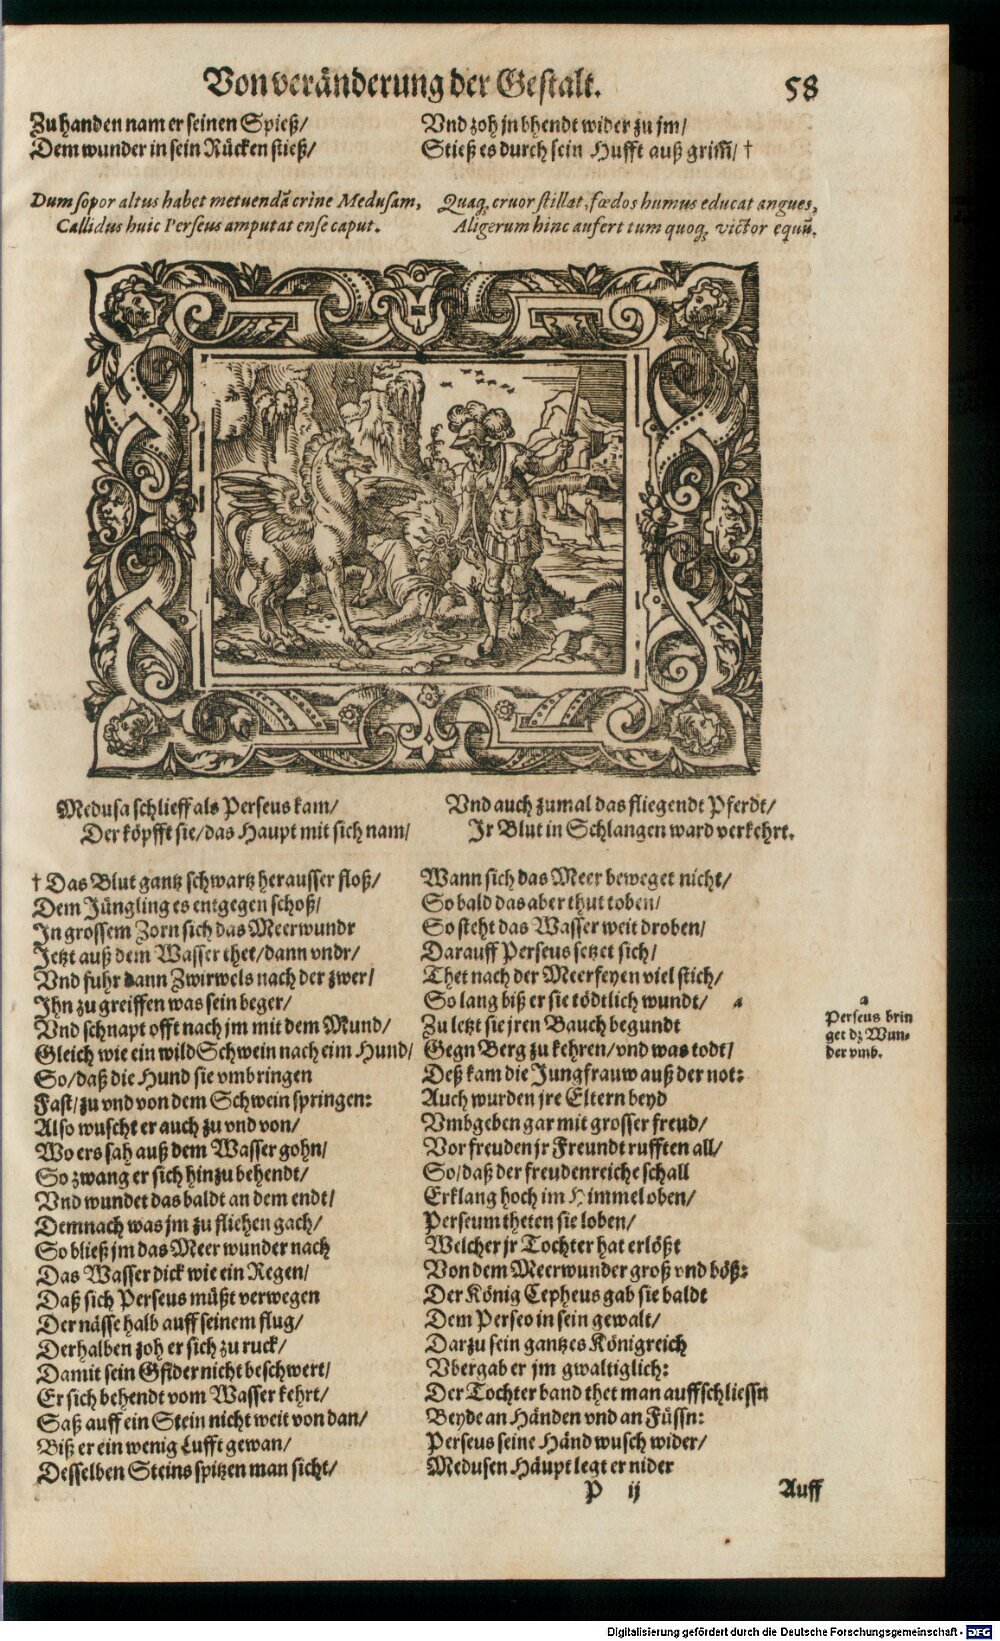 Von veränderung der Gestalt. 58
Zu handen nam er seinen Spieß/
Dem wunder in sein Rücken stieß/
Vnd zoh jn bhendt wider zu jm/
Stieß es durch sein Hufft auß grim̃/ †
Dum sopor altus habet metuendã crine Medusam,
Callidus huic Perseus amputat ense caput.
Quaq; cruor stillat, fœdos humus educat angues,
Aligerum hinc aufert tum quoq; victor equũ.
Medusa schlieff als Perseus kam/
Der köpfft sie/das Haupt mit sich nam/
Vnd auch zumal das fliegendt Pferdt/
Jr Blut in Schlangen ward verkehrt.
† Das Blut gantz schwartz herausser floß/
Dem Jüngling es entgegen schoß/
Jn grossem Zorn sich das Meerwundr
Jetzt auß dem Wasser thet/dann vndr/
Vnd fuhr dann Zwirwels nach der zwer/
Jhn zu greiffen was sein beger/
Vnd schnapt offt nach jm mit dem Mund/
Gleich wie ein wild Schwein nach eim Hund/
So/daß die Hund sie vmbringen
Fast/zu vnd von dem Schwein springen:
Also wuscht er auch zu vnd von/
Wo ers sah auß dem Wasser gohn/
So zwang er sich hinzu behendt/
Vnd wundet das baldt an dem endt/
Demnach was jm zu fliehen gach/
So bließ jm das Meerwunder nach
Das Wasser dick wie ein Regen/
Daß sich Perseus müßt verwegen
Der nässe halb auff seinem flug/
Derhalben zoh er sich zu ruck/
Damit sein Gfider nicht beschwert/
Er sich behendt vom Wasser kehrt/
Saß auff ein Stein nicht weit von dan/
Biß er ein wenig Lufft gewan/
Desselben Steins spitzen man sicht/
Wann sich das Meer beweget nicht/
So bald das aber thut toben/
So steht das Wasser weit droben/
Darauff Perseus setzet sich/
Thet nach der Meerfeyen viel stich/
So lang biß er sie tödtlich wundt/ a
Zu letzt sie jren Bauch begundt
Gegn Berg zu kehren/vnd was todt/
Deß kam die Jungfrauw auß der not:
Auch wurden jre Eltern beyd
Vmbgeben gar mit grosser freud/
Vor freuden jr Freundt rufften all/
So/daß der freudenreiche schall
Erklang hoch im Himmel oben/
Perseum theten sie loben/
Welcher jr Tochter hat erlößt
Von dem Meerwunder groß vnd böß:
Der König Cepheus gab sie baldt
Dem Perseo in sein gewalt/
Darzu sein gantzes Königreich
Vbergab er jm gwaltiglich:
Der Tochter band thet man auffschliessn
Beyde an Händen vnd an Füssn:
Perseus seine Händ wusch wider/
Medusen Häupt legt er nider
a
Perseus brin
get dz Wun-
der vmb.
P ij Auff
Digitalisierung gefördert durch die Deutsche Forschungsgemeinschaft - DFG